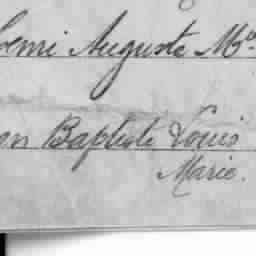 Auguste M
Baptiste Louis
Marie.